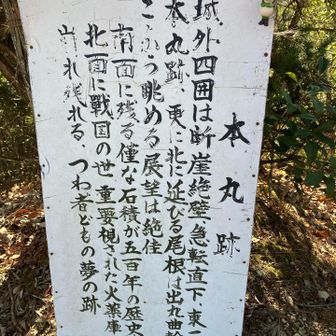 本丸跡
城外四囲は断崖絶壁急転直下、東
本丸跡 更に北に延びる尾根は出丸曲
こゝから眺める展望は絶佳
南面に残る僅な石積が五百年の歴史
北面に戦国の世重要視された火薬庫
崩れ残れる つわ者どもの夢の跡